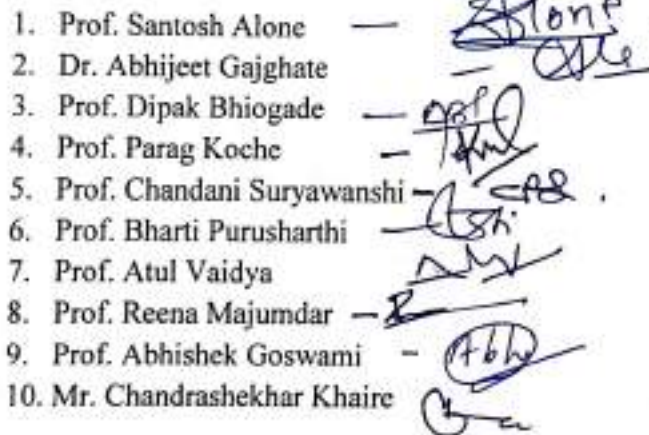 1. Prof. Santosh Alone —
2. Dr. Abhijeet Gajghate —
3. Prof. Dipak Bhiogade —
4. Prof. Parag Koche —
5. Prof. Chandani Suryawanshi —
6. Prof. Bharti Purusharthi —
7. Prof. Atul Vaidya
8. Prof. Reena Majumdar —
9. Prof. Abhishek Goswami -
10. Mr. Chandrashekhar Khaire